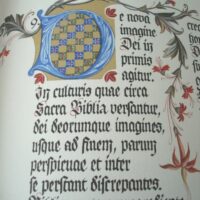 De nova
imagine
Dei in
primis
agitur.
In culturis quae circa
Sacra Biblia versantur,
dei deorumque imagines,
usque ad finem, parum
perspicuae et inter
se perstant discrepantes.